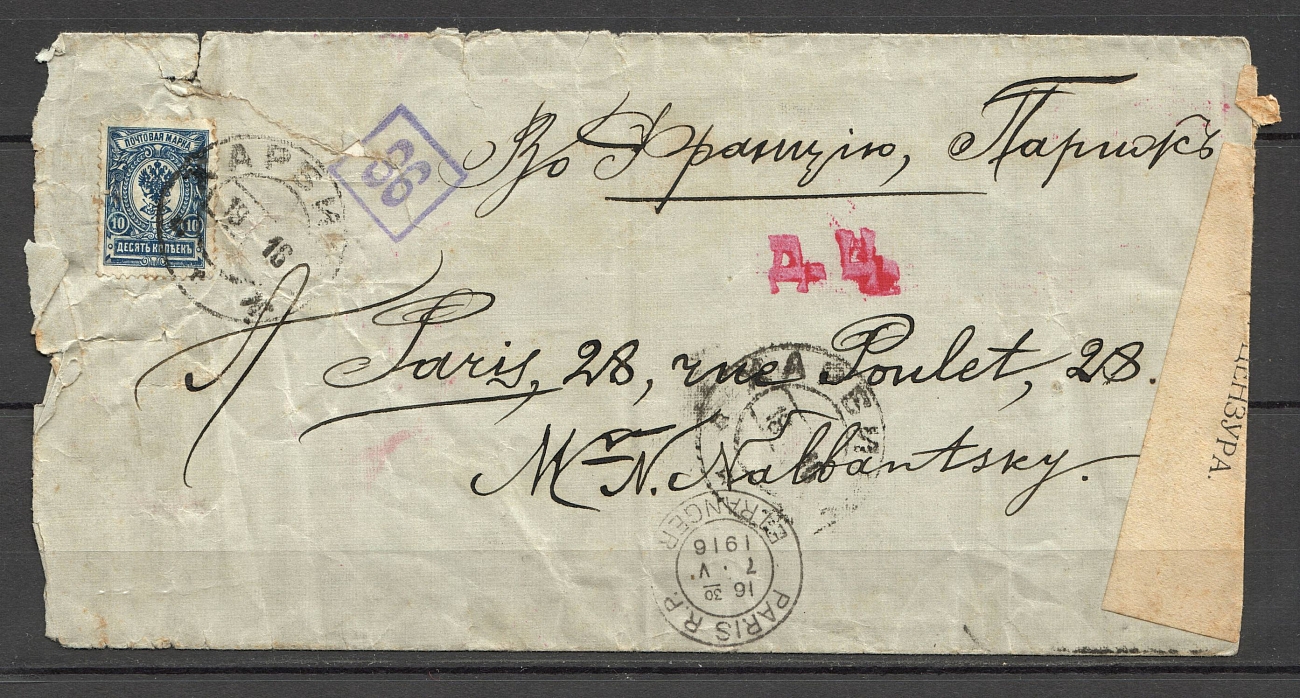 Во Францію, Парижъ
ПОЧТОВАЯ МАРКА
10 10
ДЕСЯТЬ КОПѢЕКЪ
18
16
Д. Ц.
A Paris, 28, rue Poulet, 28.
Mr N. Nalbantsky.
18
ЦЕНЗУРА.
PARIS R.P.
16 30
7 · V
1916
ETRANGER